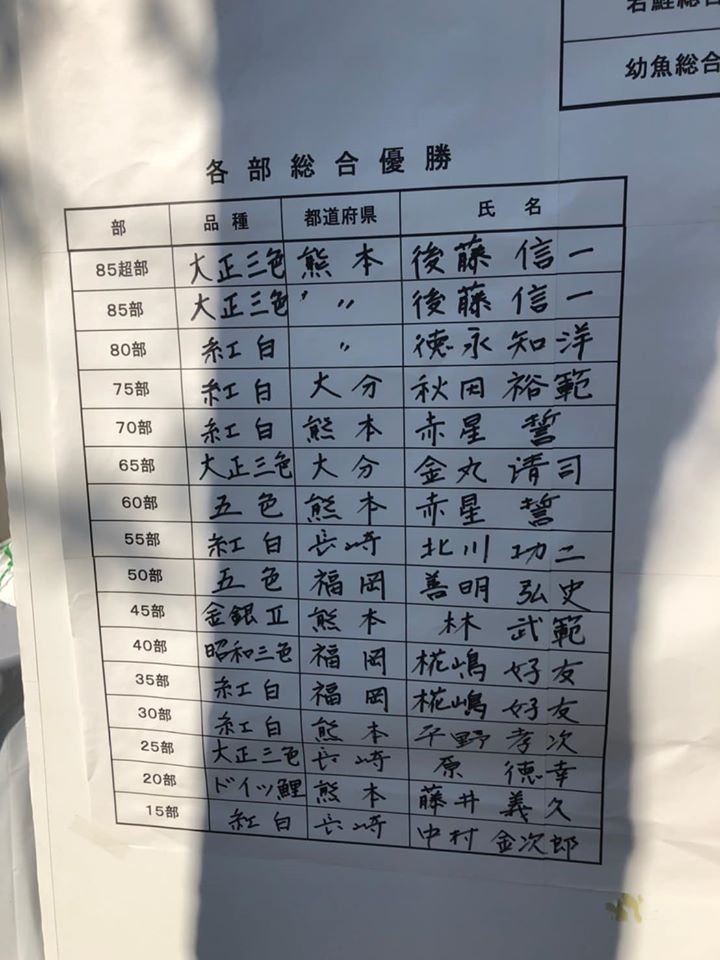 若鯉総合
幼魚総合
各部総合優勝
部 品種 都道府県 氏名
85超部 大正三色 熊本 後藤信一
85部 大正三色 〃 後藤信一
80部 紅白 〃 徳永知洋
75部 紅白 大分 秋田裕範
70部 紅白 熊本 赤星誓
65部 大正三色 大分 金丸清司
60部 五色 熊本 赤星誓
55部 紅白 長崎 北川功二
50部 五色 福岡 善明弘史
45部 金銀Ⅱ 熊本 林武範
40部 昭和三色 福岡 椛嶋好友
35部 紅白 福岡 椛嶋好友
30部 紅白 熊本 平野孝次
25部 大正三色 長崎 原徳幸
20部 ドイツ鯉 熊本 藤井義久
15部 紅白 長崎 中村金次郎